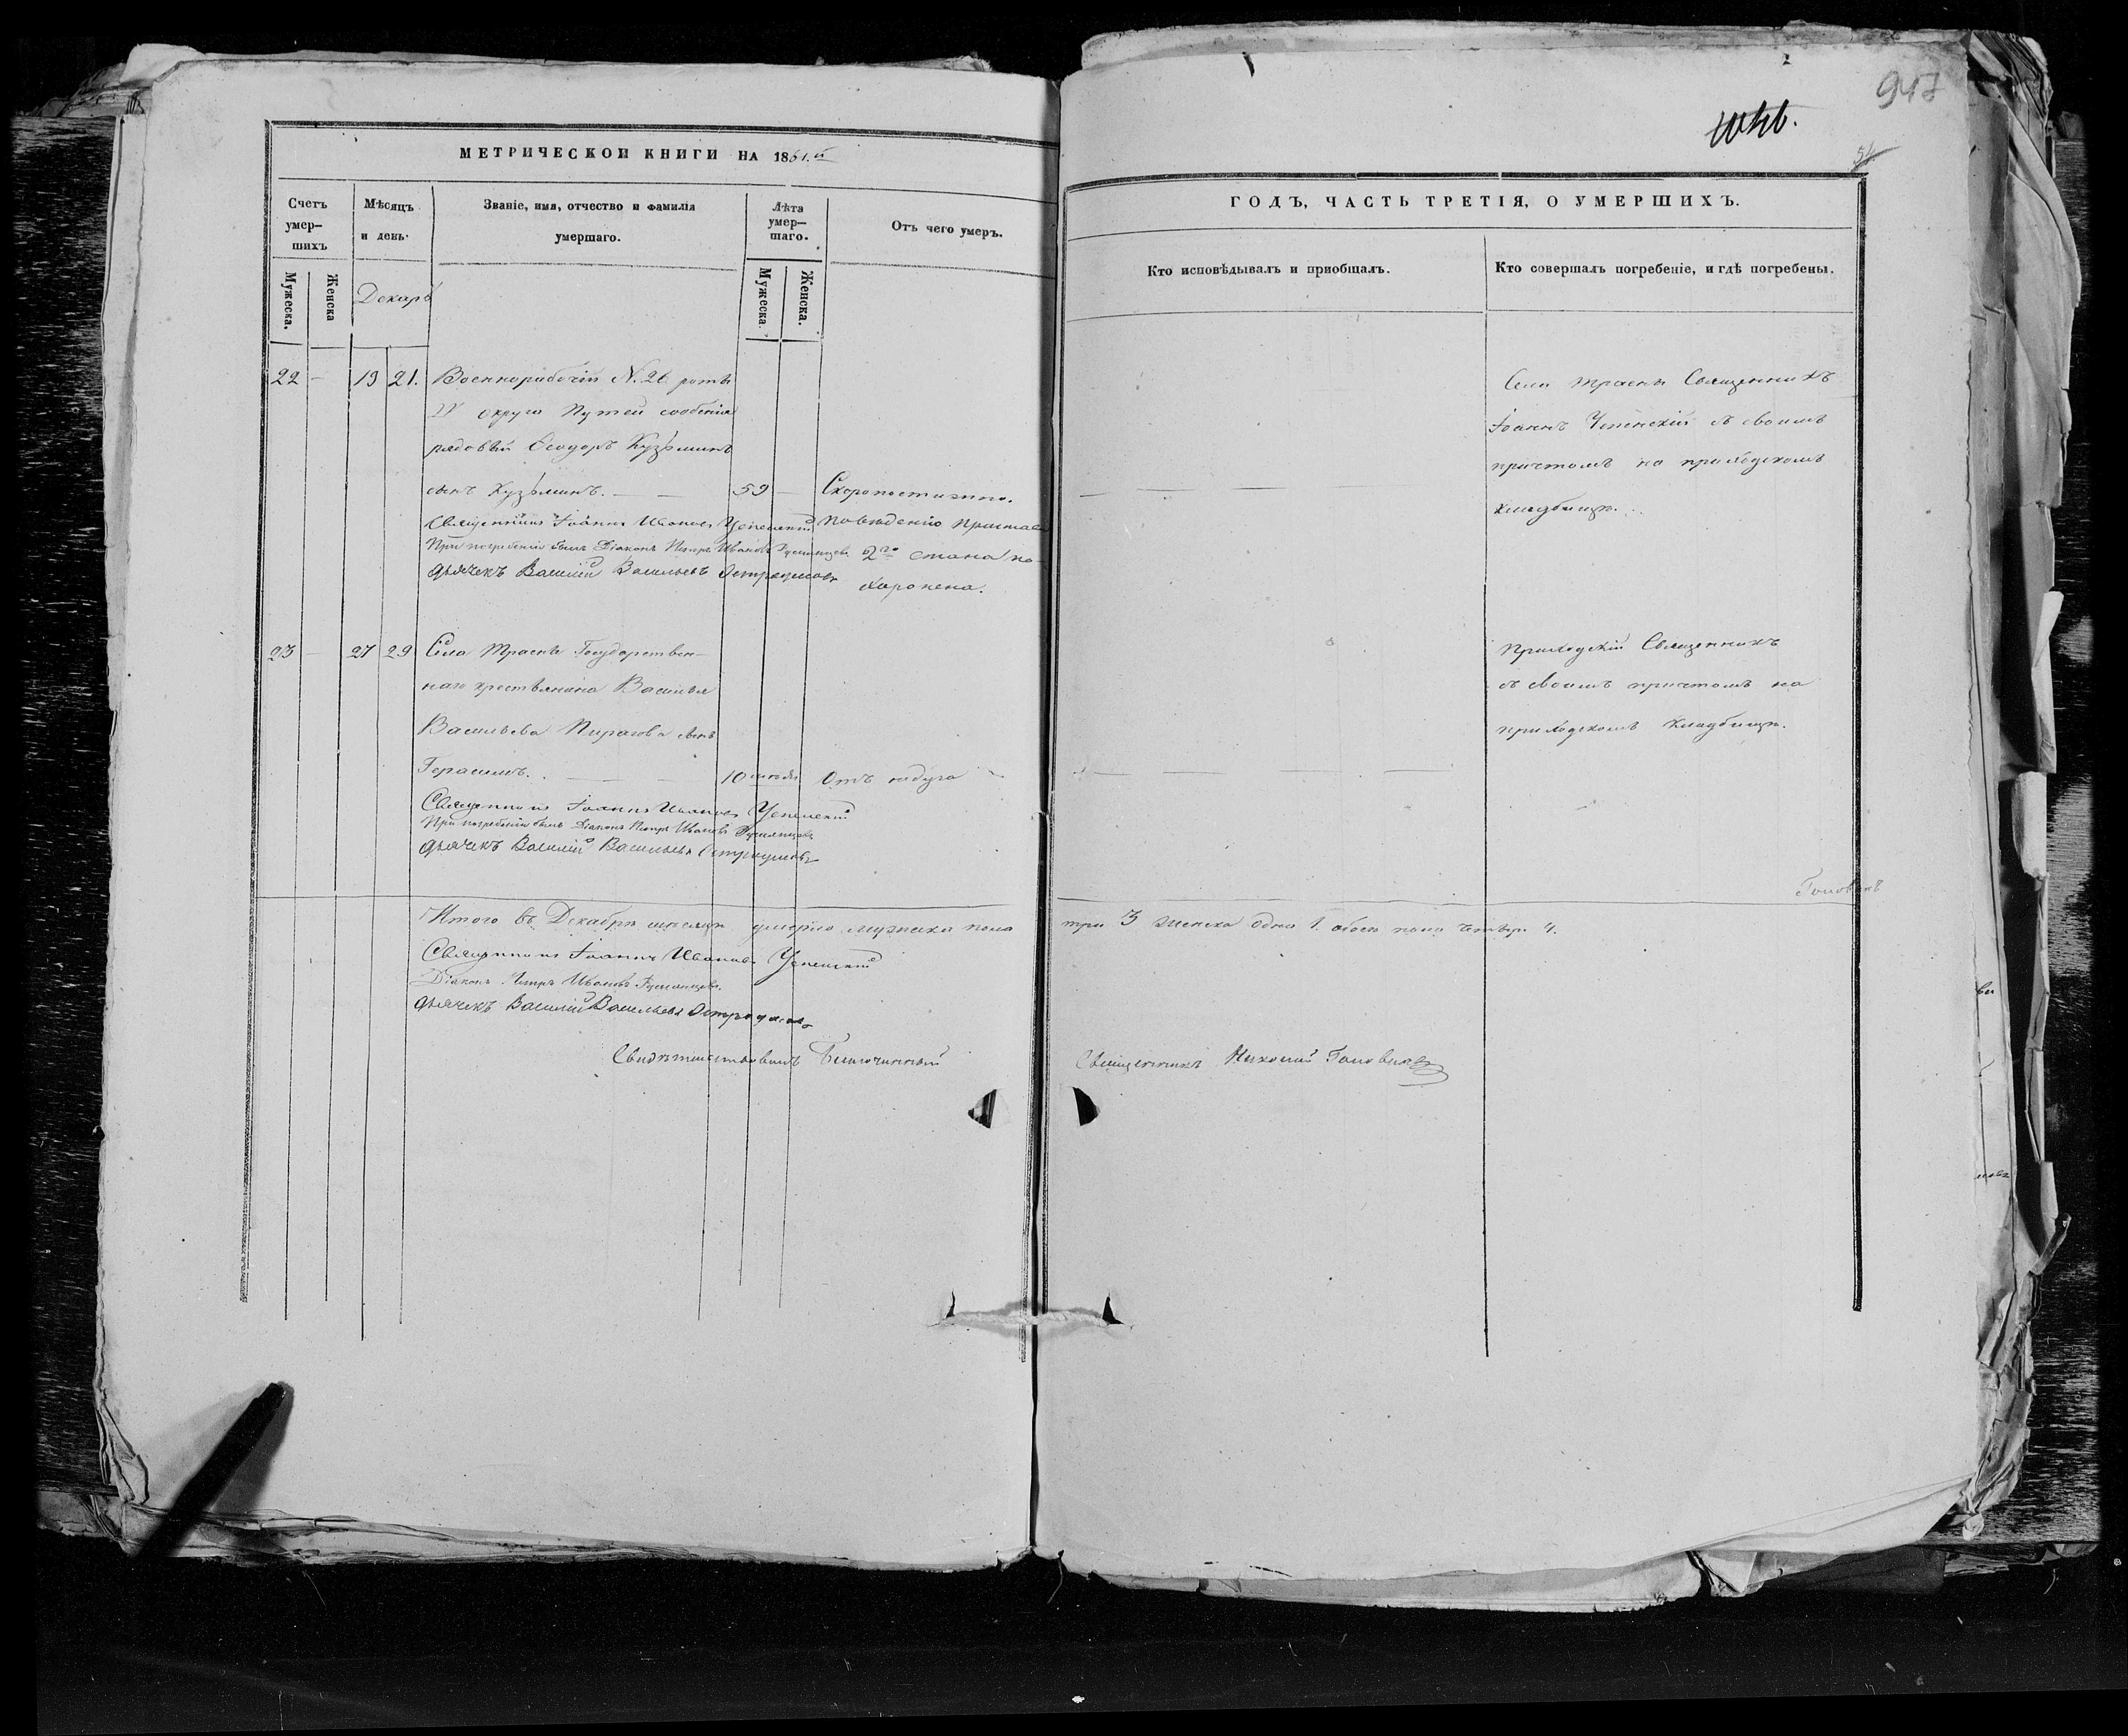 947
54
МЕТРИЧЕСКОИ КНИГИ НА 1861.й
ГОДЪ, ЧАСТЬ ТРЕТІЯ, О УМЕРШИХЪ.
Счетъ умер-шихъ
Мужеска.
Женска
Мѣсяцъ и день.
Званіе, имя, отчество и фамилія умершаго.
Лѣта умер-шаго.
Мужеска.
Женска.
Отъ чего умеръ.
Кто исповѣдывалъ и пріобщалъ.
Кто совершалъ погребеніе, и гдѣ погребены.
Декарь
22 – 19 21. Военнорабочій N. 26 роты
IV округа Путей сообенія
рядовый Ѳеодоръ Кузьминъ
сынъ Кузьминъ. 59 – Скоропостижно.
Священникъ Іоаннъ Ивановъ Успенскій
По веденію Пристава
При погребеніи былъ Діаконъ Петръ Ивановъ
2го стана по-
Дьячекъ Василій Васильевъ Остроумовъ
хоронена.
Села Траски Священникъ
Іоаннъ Успенскій съ своимъ
причтомъ на приходскомъ
кладбищѣ.
23 – 27 29 Села Траски Государствен-
наго крестьянина Василья
Васильева Пирогова сынъ
Герасимъ. 10 недѣл Отъ недуга
Священникъ Іоаннъ Ивановъ Успенскій
При погребеніи былъ Діаконъ Петръ Ивановъ
Дьячекъ Василій Васильевъ Остроумовъ
Приходскій Священникъ
съ своимъ причтомъ на
приходскомъ кладбищѣ.
Головинъ
Итого въ Декабрѣ мѣсяцѣ умерло мужеска пола три 3 женска одна 1. обоего пола четыре 4.
Священникъ Іоаннъ Ивановъ Успенскій
Діаконъ Петръ Ивановъ
Дьячекъ Василій Васильевъ Остроумовъ
Свидѣтельствовалъ Благочинный Священникъ Николай Головинъ